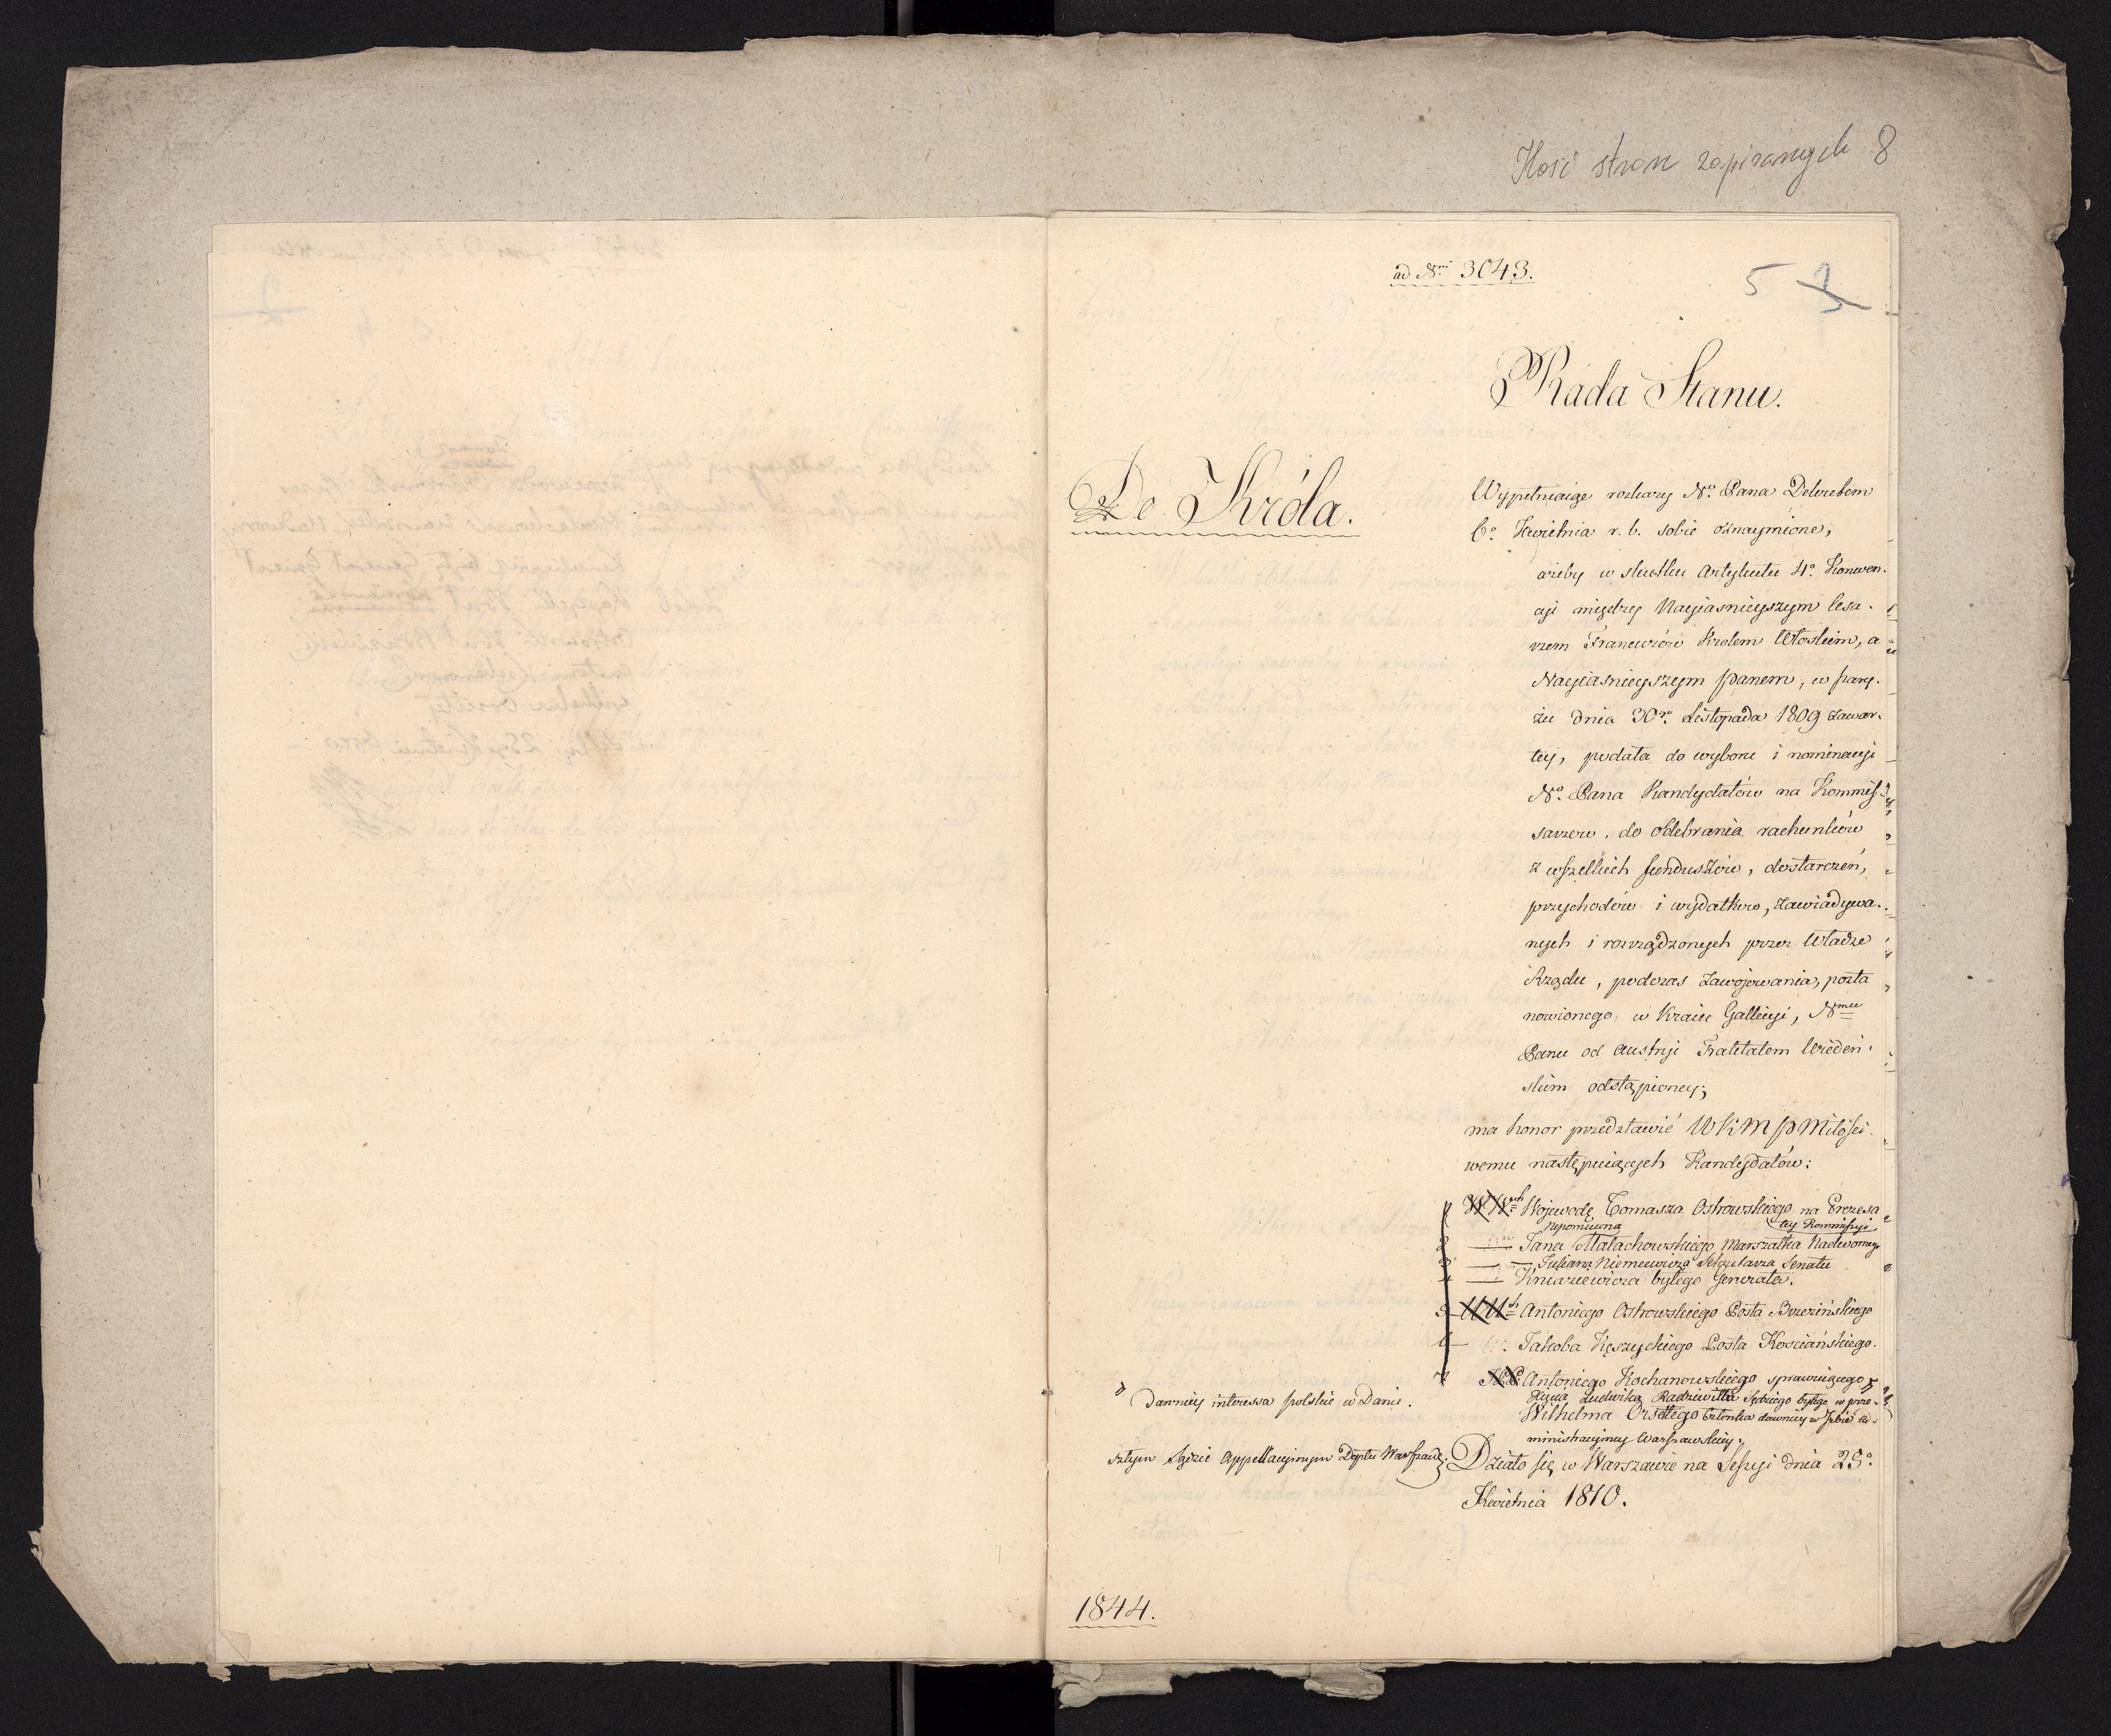 Ilość stron zapisanych 8
ad Nrm 3043.
5 3
Rada Stanu.
Do Króla.
Wypełniaiąc rozkazy No. Pana Dekretem
6o. Kwietnia r. b. sobie oznaymione,
ażeby w skutku Artykułu 4o. Konwen-
cyi między Nayiasnieyszym Cesa-
rzem Francuzów Krolem Włoskim, a
Nayiasnieyszym Panem, w Pary-
żu dnia 30go. Listopada 1809 zawar-
tey, podała do wyboru i nominacyi
No. Pana Kandydatów na Kommis-
sarzow, do odebrania rachunków
z wszelkich funduszów, dostarczeń,
przychodów i wydatkow, zawiadywa-
nych i rozrządzonych przez Władze
Rządu, podczas zawojowania, posta
nowionego w Kraiu Gallicyi, Nmu
Panu od Austryi Traktatem Wiedeń-
skim odstąpioney;
ma honor przedstawić WKM P Miłości-
wemu następuiących Kandydatów:
WWch Wojewodę Tomasza Ostrowskiego na Prezesa
tey Kommissyi
Nepomucena
Jana Małachowskiego Marszałka Nadwornego
Juliana Niemcewicza Sekretarza Senatu
Kniaziewicza byłego Generała.
5 UUch Antoniego Ostrowskiego Posła Brzezińskiego
6 Jakoba Kęszyckiego Posła Kościańskiego.
7 Antoniego Kochanowskiego sprawuiącego
dawniey interessa polskie w Danii.
Xięcia Ludwika Radziwiłła Sędziego byłego w prze-
szłym Sądzie Appellacyinym Deptu Warszaw:
Wilhelma Orsettego Członka dawniey w Izbie Ad-
ministracyiney Warszawskiey.
Działo się w Warszawie na Sessyi dnia 25o.
Kwietnia 1810.
1844.